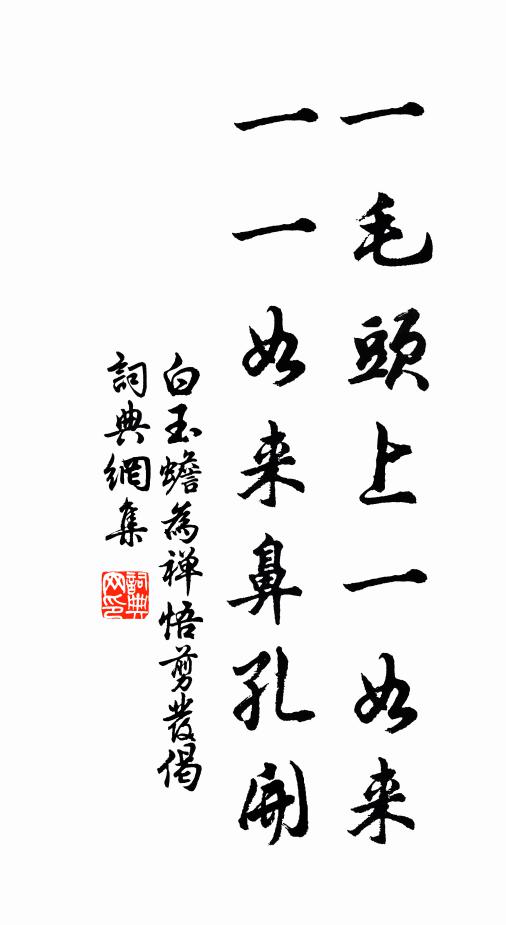 一毛頭上一如来
一一如来鼻孔開
白玉蟾為禅悟剪發偈
詞典網集
詞典网印